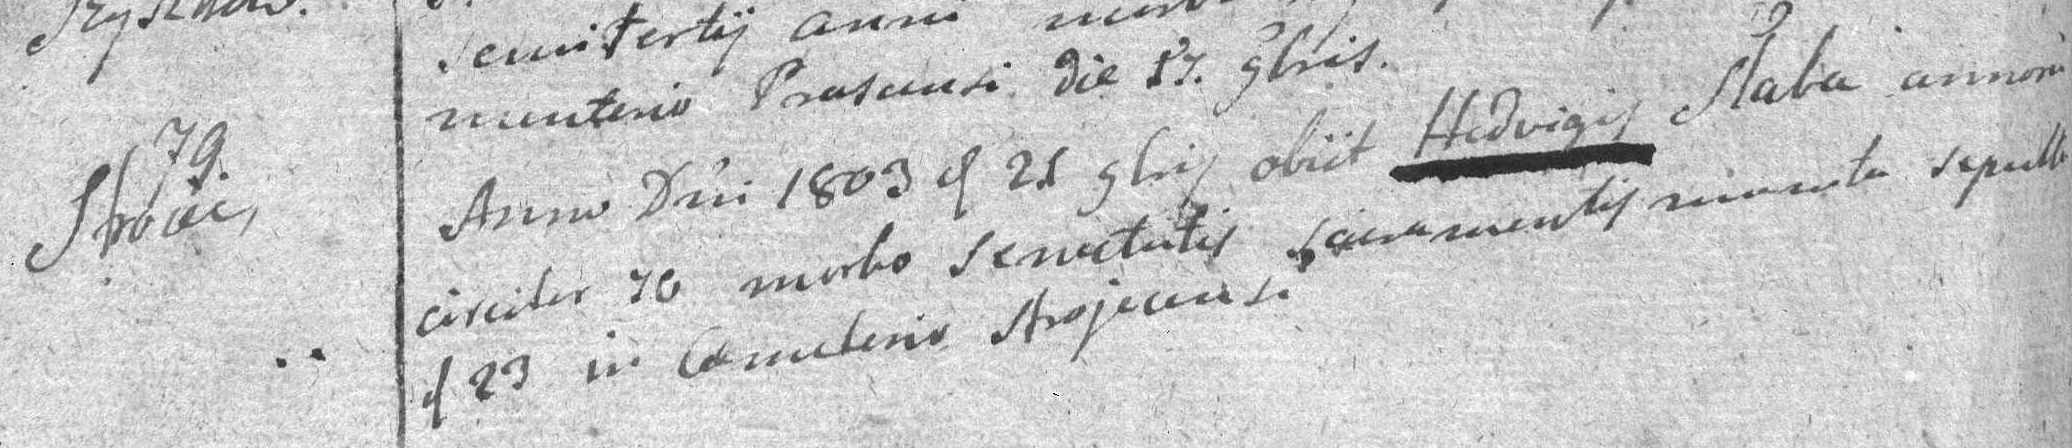 semitertij anni
menterio Prasensi die 17. 9bris.
79.
Stroiec,
Anno Dni 1803 d 21 9bris obiit Hedvigis Slaba annoru
circiter 70 morbo senectutis sacramentis munita sepulta
d 23 in Cemeterio Strojecensi